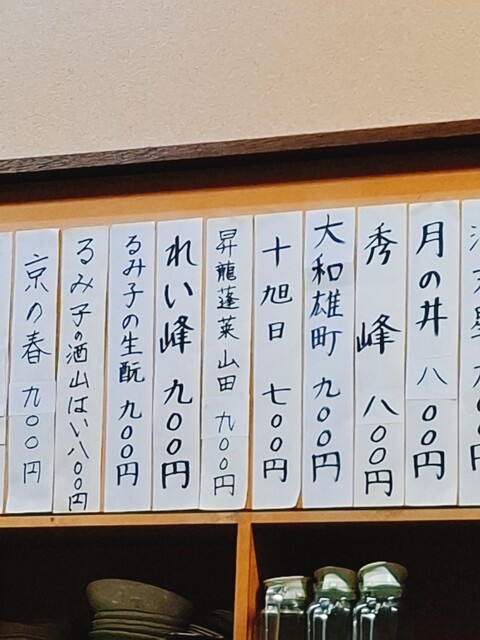 月の井 八〇〇円
秀峰 八〇〇円
大和雄町 九〇〇円
十旭日 七〇〇円
昇龍蓬莱 山田 九〇〇円
れい峰 九〇〇円
るみ子の生酛 九〇〇円
るみ子の酒山はい八〇〇円
京の春 九〇〇円